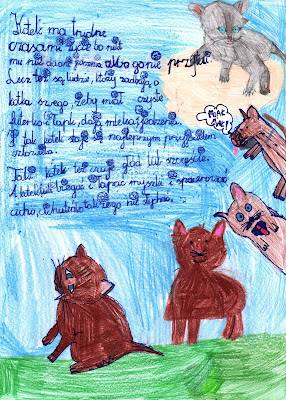 Kotek ma trudne
czasami życie bo nikt
mu nie daje jedzenia albo go nie przytuli.
Lecz też są ludzie, którzy zadbają o
kotka swego, żeby miał czyste
futerko i łapki, dają mleka i jedzenia.
I tak kotek staje się najlepszym przyjacielem
człowieka.
Taki kotek też czuje głód lub szczęście.
A kotek lubi biegać i łapać myszki i spacerować
cicho,
MIAŁ